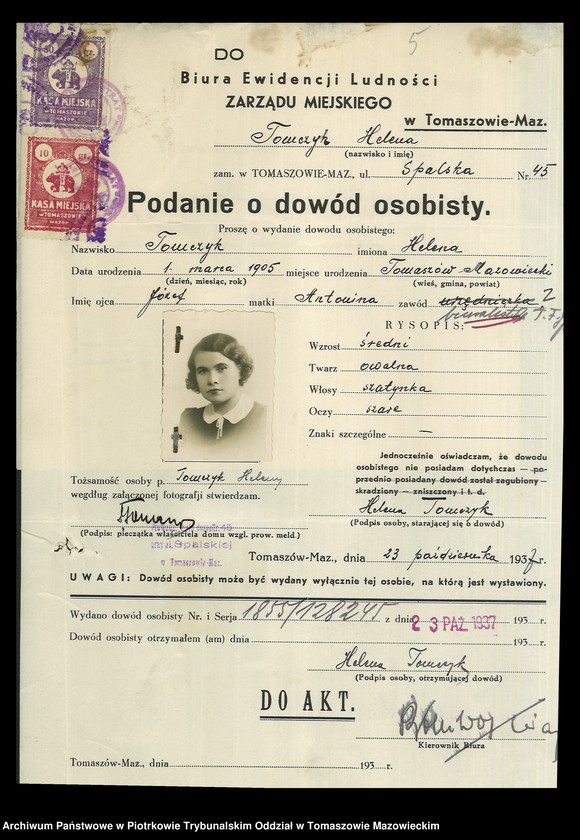 5
DO
Biura Ewidencji Ludności
ZARZĄDU MIEJSKIEGO
w Tomaszowie-Maz.
50 gr.
KASA MIEJSKA
W TOMASZOWIE
MAZOW.
10 gr.
KASA MIEJSKA
W TOMASZOWIE
MAZOW.
Tomczyk Helena
(nazwisko i imię)
zam. w TOMASZOWIE-MAZ., ul. Spalska Nr. 45
Podanie o dowód osobisty.
Proszę o wydanie dowodu osobistego:
Nazwisko Tomczyk imiona Helena
Data urodzenia 1. marca 1905 miejsce urodzenia Tomaszów Mazowiecki
(dzień, miesiąc, rok) (wieś, gmina, powiat)
Imię ojca Józef matki Antonina zawód urzędniczka
biuralistka
RYSOPIS:
Wzrost średni
Twarz owalna
Włosy szatynka
Oczy szare
Znaki szczególne —
Jednocześnie oświadczam, że dowodu
osobistego nie posiadam dotychczas — po-
przednio posiadany dowód został zagubiony
skradziony — zniszczony i t. d.
Tożsamość osoby p. Tomczyk Heleny
według załączonej fotografji stwierdzam.
Helena Tomczyk
(Podpis osoby, starającej się o dowód)
(Podpis: pieczątka właściciela domu wzgl. prow. meld.)
45
Spalskiej
w Tomaszowie-Maz.
Tomaszów-Maz., dnia 23 października 1937 r.
UWAGI: Dowód osobisty może być wydany wyłącznie tej osobie, na którą jest wystawiony.
Wydano dowód osobisty Nr. i Serja 1855/128245 z dnia 23 PAŹ. 1937 193 r.
Dowód osobisty otrzymałem (am) dnia 193 r.
Helena Tomczyk
(Podpis osoby, otrzymującej dowód)
DO AKT.
Kierownik Biura
Tomaszów-Maz., dnia 193 r.
Archiwum Państwowe w Piotrkowie Trybunalskim Oddział w Tomaszowie Mazowieckim